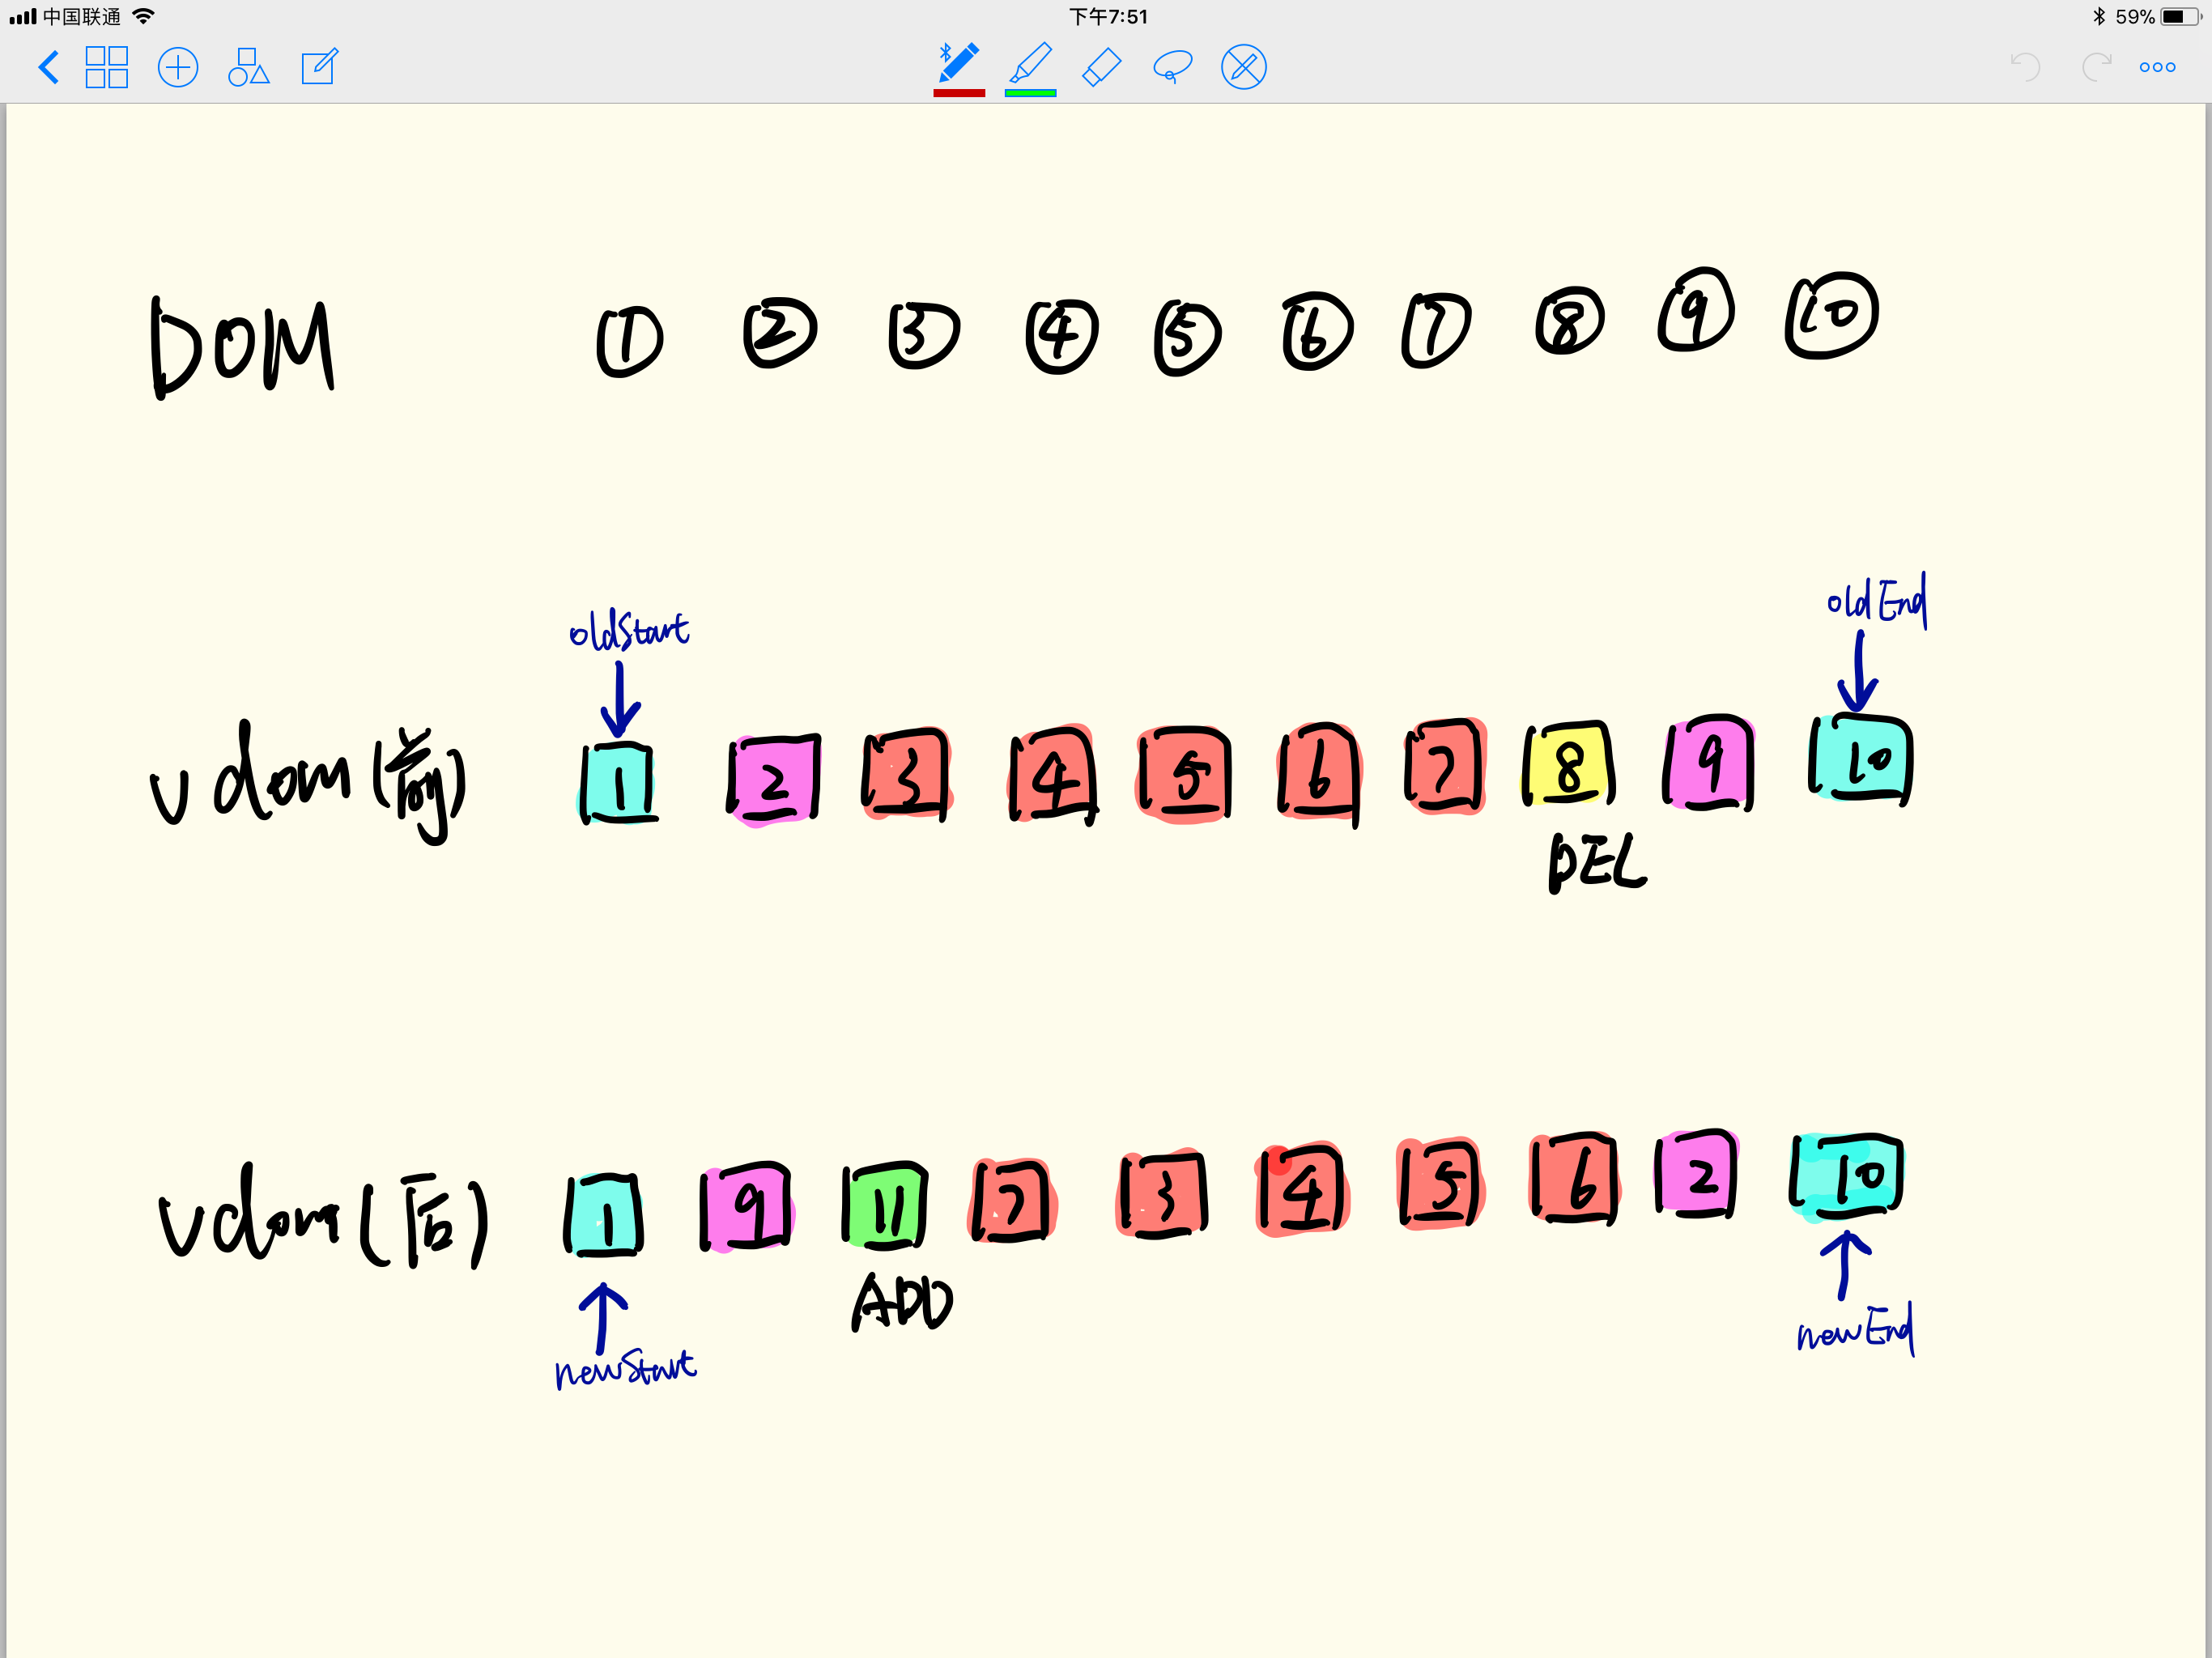 中国联通 下午7:51 59%
DOM ① ② ③ ④ ⑤ ⑥ ⑦ ⑧ ⑨ ⑩
oldStart oldEnd
vdom(前) 1 2 3 4 5 6 7 8 9 10
DEL
vdom(后) 1 9 11 7 3 4 5 6 2 10
ADD
newStart newEnd